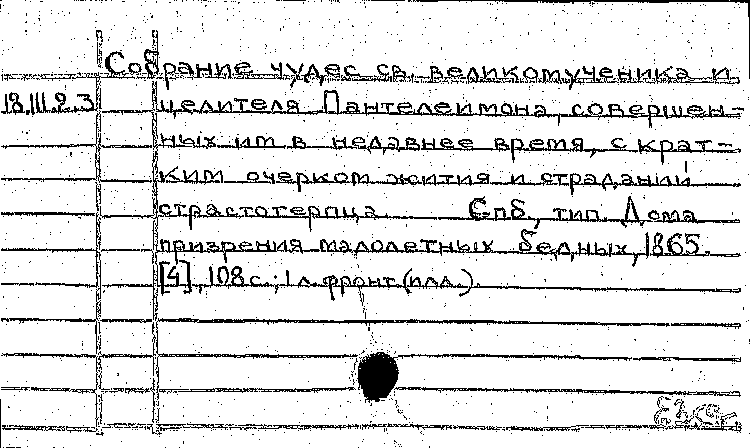 Собрание чудес св. великомученика и
18.III.2.3 целителя Пантелеимона, совершен-
ных им в недавнее время, с крат-
ким очерком жития и страданий
страстотерпца. Спб, тип. Дома
призрения малолетных бедных, 1865.
[4], 108 с.; 1 л. фронт. (илл.).